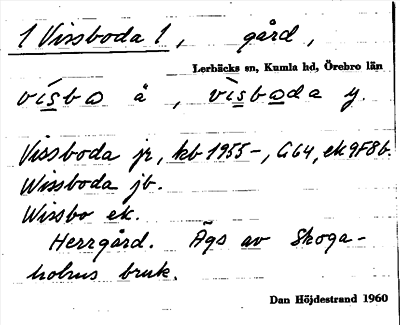 1 Vissboda 1, gård,
Lerbäcks sn, Kumla hd, Örebro län
vísbo å, vìsboda y.
Vissboda jr, kb 1955-, G64, ek 9F8b.
Wissboda jb.
Wissbo ek.
Herrgård. Ägs av Skoga-
holms bruk.
Dan Höjdestrand 1960